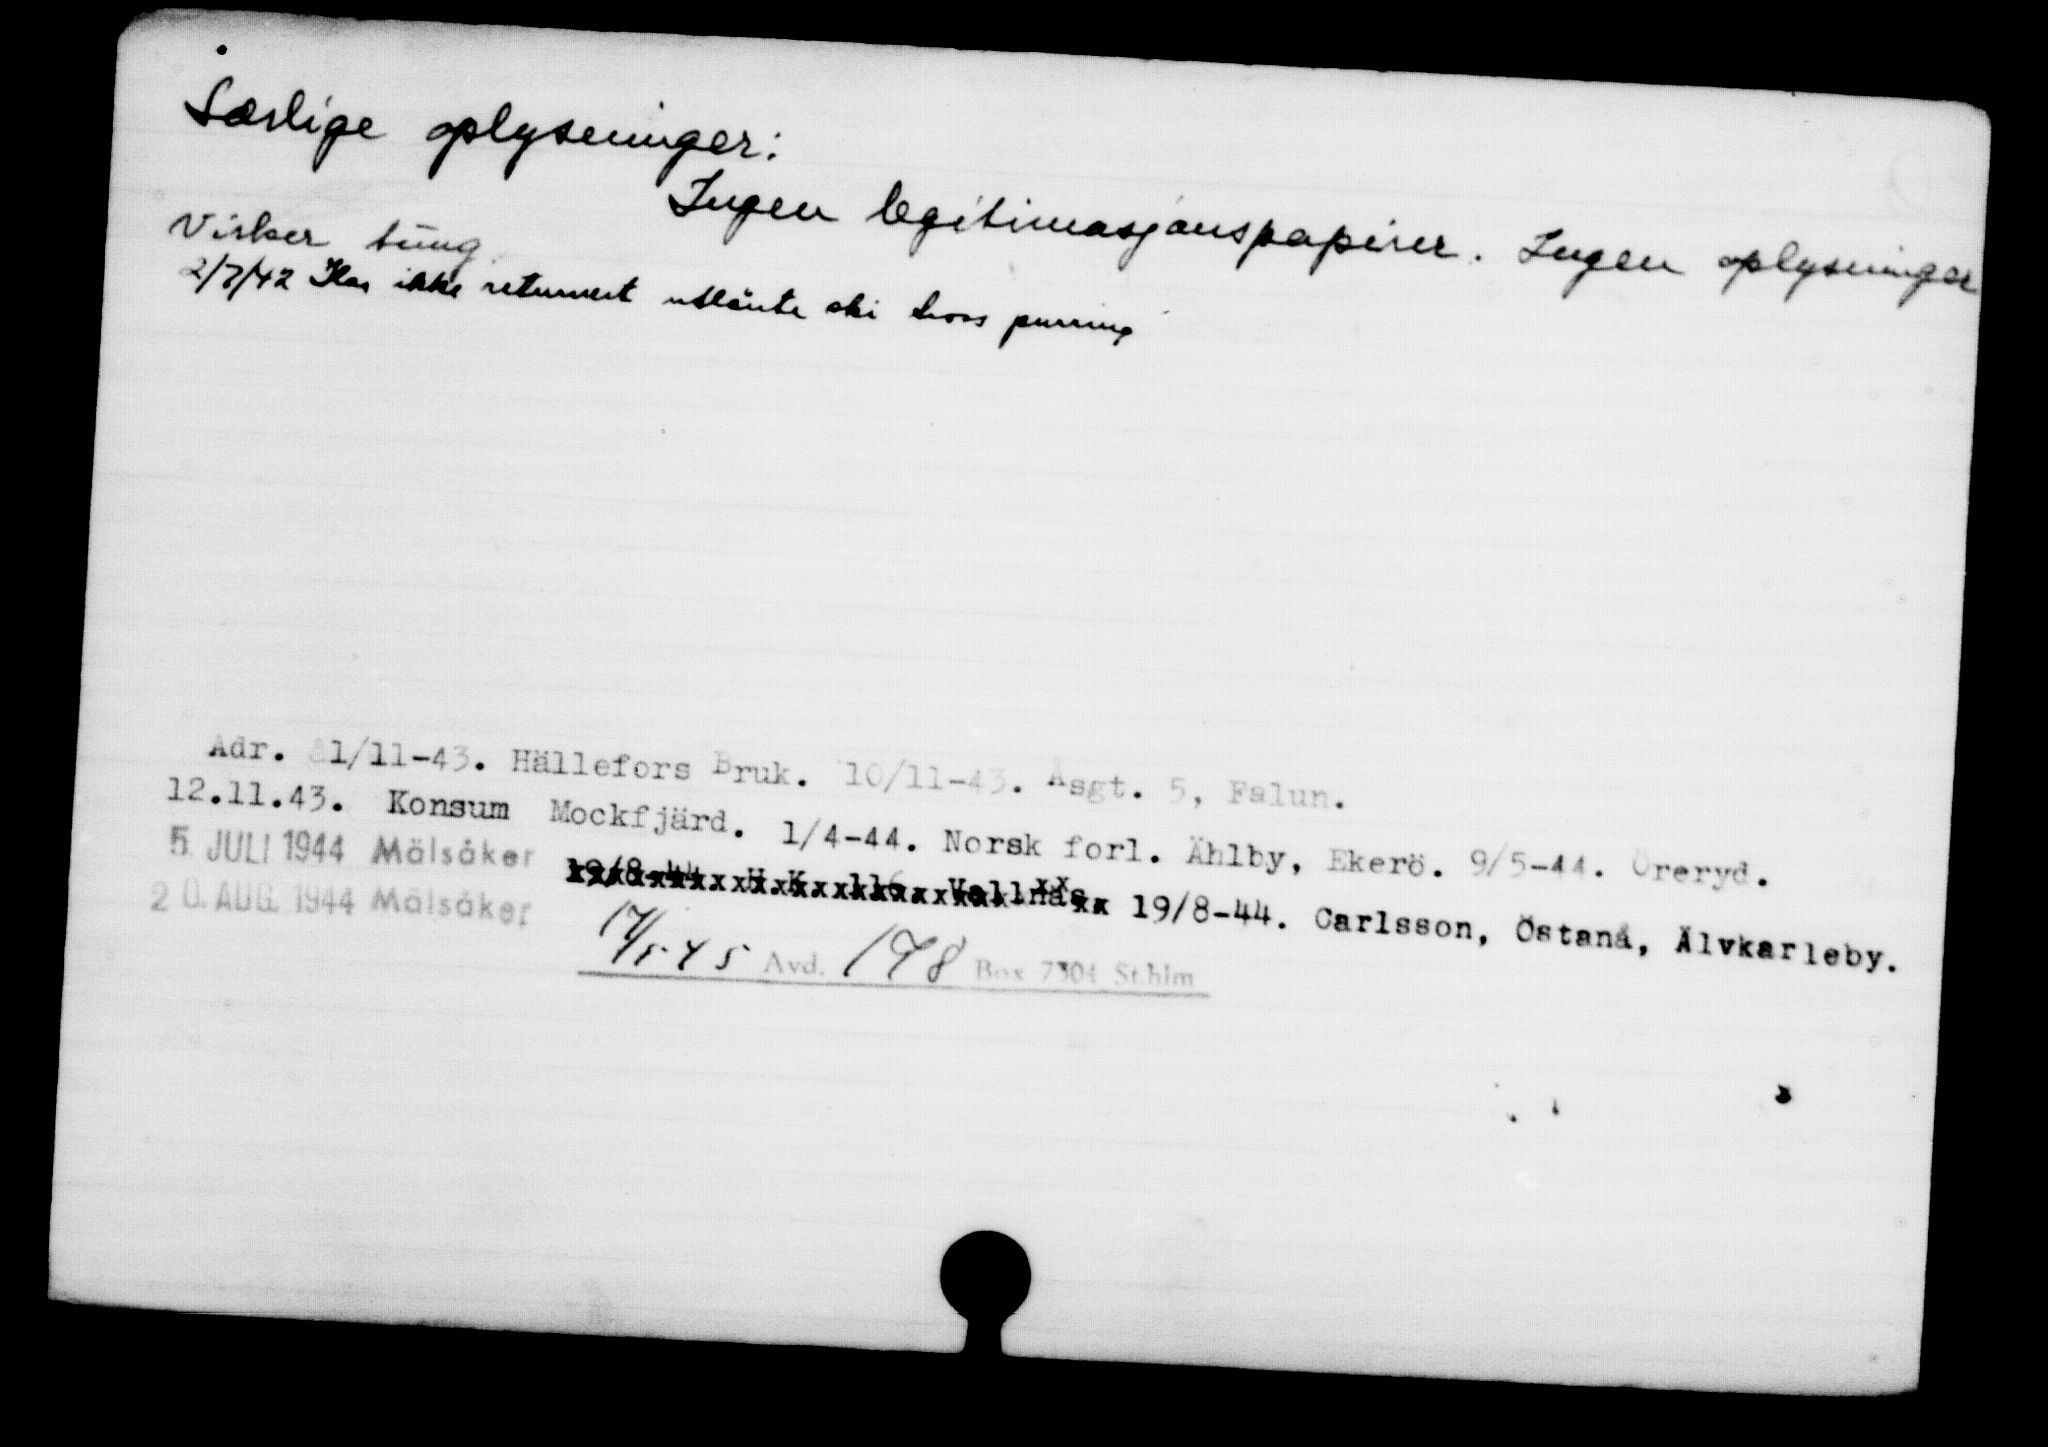 Særlige oplysninger:
Ingen legitimasjonspapirer. Ingen oplysninger
Virker tung.
2/7/42 Har ikke returnert utlånte ski tross purring
Adr. 1/11-43. Hällefors Bruk. 10/11-43. Åsgt. 5, Falun.
12.11.43. Konsum Mockfjärd. 1/4-44. Norsk forl. Ählby, Ekerö. 9/5-44. Öreryd.
5. JULI 1944 Mälsåker
19/8-44. Vallnäs. 19/8-44. Carlsson, Östanå, Älvkarleby.
20. AUG. 1944 Mälsåker
17/5-45 Avd. 178 Box 7304 St.hlm